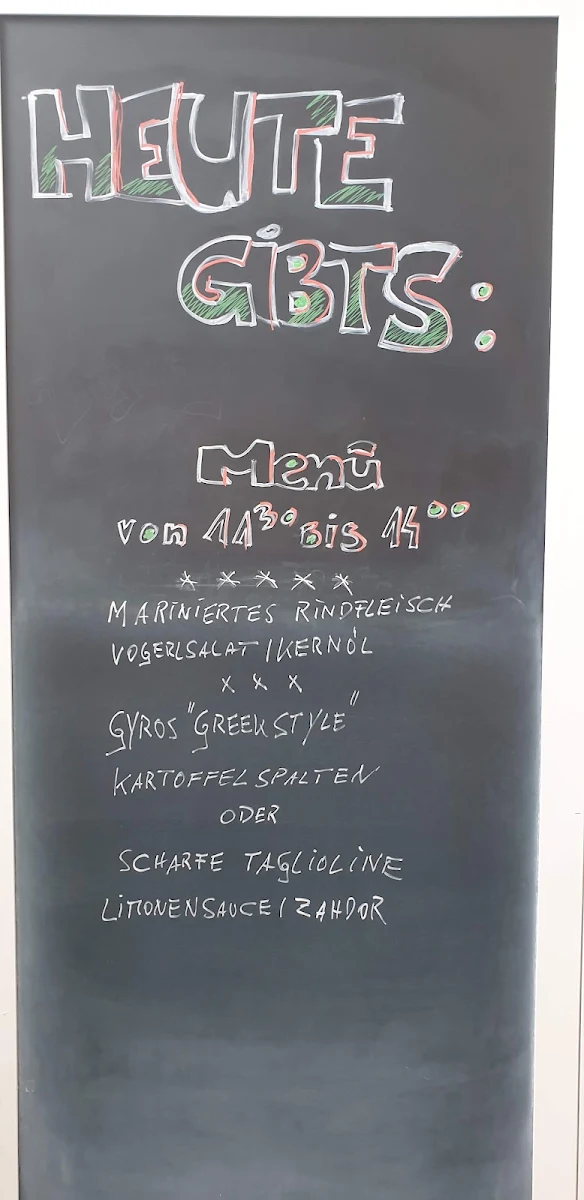 HEUTE
GiBTS:
Menü
von 11³⁰ bis 14⁰⁰
* * * * *
MARINIERTES RINDFLEISCH
VOGERLSALAT / KERNÖL
x x x
GYROS "GREEK STYLE"
KARTOFFELSPALTEN
ODER
SCHARFE TAGLIOLINE
LIMONENSAUCE / ZAHDOR